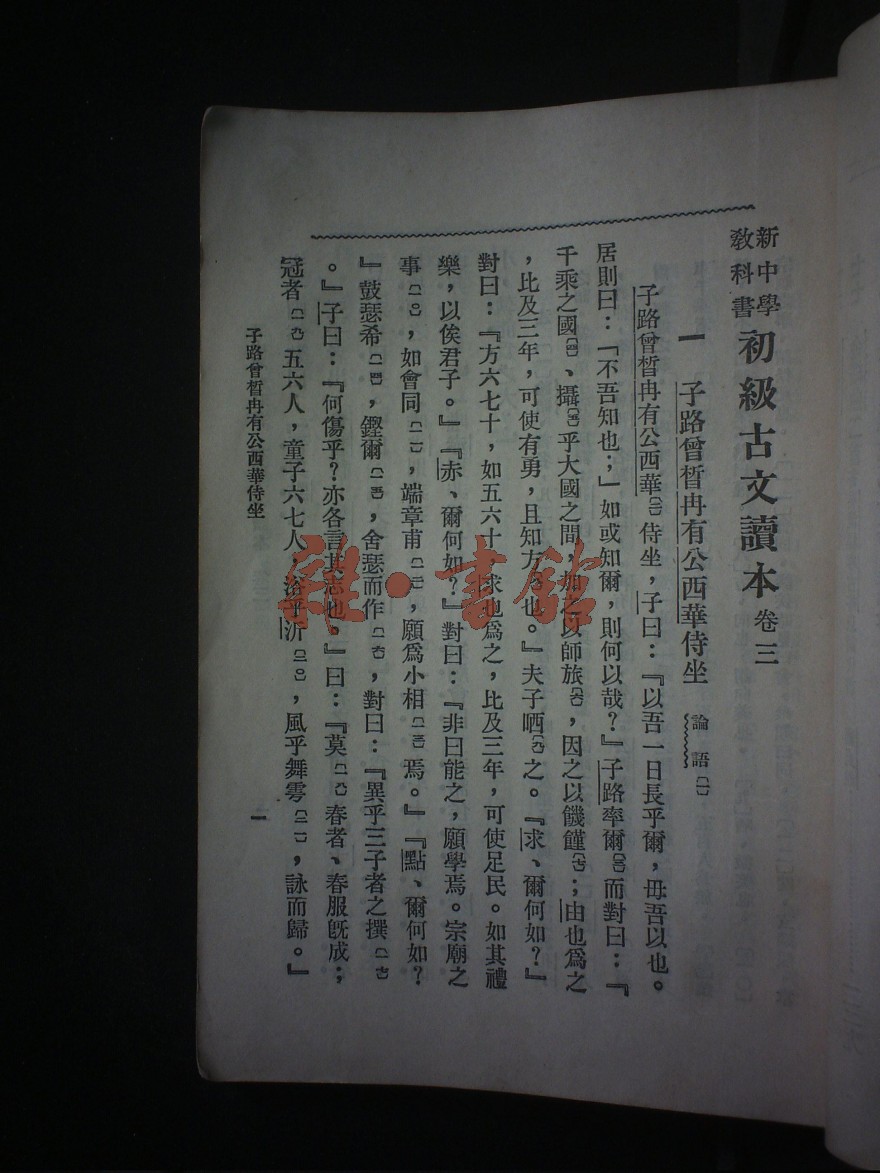 新中學
教科書
初級古文讀本 卷三
一 子路曾皙冉有公西華侍坐 論語(一)
子路曾皙冉有公西華(二)侍坐，子曰：『以吾一日長乎爾，毋吾以也。
居則曰：「不吾知也；」如或知爾，則何以哉？』子路率爾(三)而對曰：『
千乘之國(四)、攝(五)乎大國之間，加之以師旅(六)，因之以饑饉(七)；由也爲之
，比及三年，可使有勇，且知方(八)也。』夫子哂(九)之。『求、爾何如？』
對曰：『方六七十，如五六十，求也爲之，比及三年，可使足民。如其禮
樂，以俟君子。』『赤、爾何如？』對曰：『非曰能之，願學焉。宗廟之
事(一〇)，如會同(一一)，端章甫(一二)，願爲小相(一三)焉。』『點、爾何如？
』鼓瑟希(一四)，鏗爾(一五)，舍瑟而作(一六)，對曰：『異乎三子者之撰(一七)
。』子曰：『何傷乎？亦各言其志也。』曰：『莫(一八)春者、春服旣成；
冠者(一九)五六人，童子六七人，浴乎沂(二〇)，風乎舞雩(二一)，詠而歸。』
子路曾皙冉有公西華侍坐
一
雜·書館